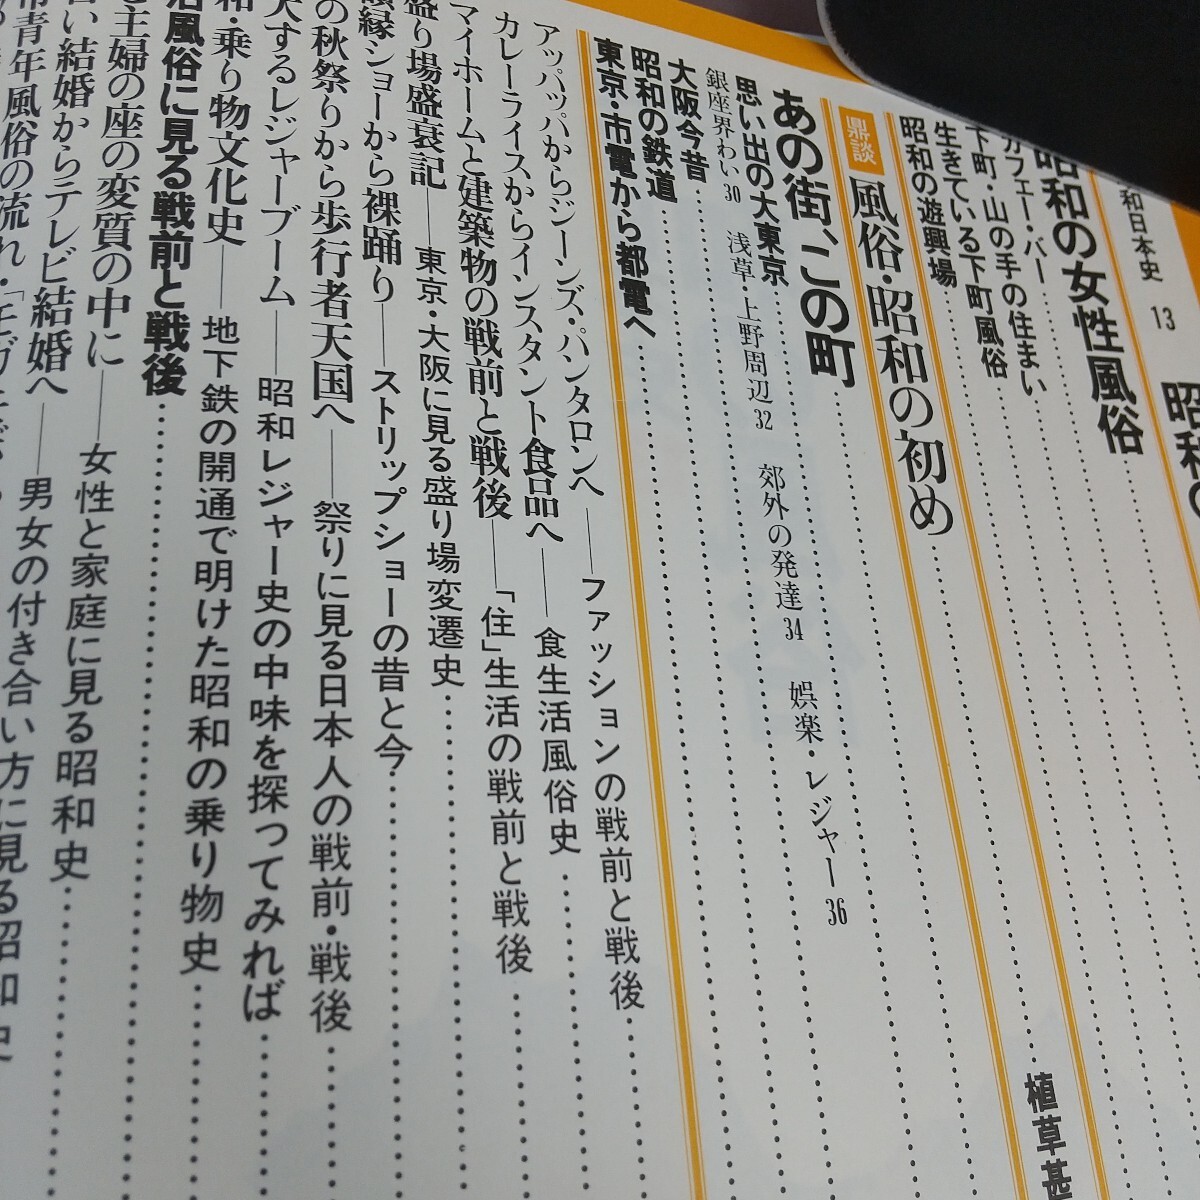 和日本史 13
昭和の
昭和の女性風俗
カフェー・バー
下町・山の手の住まい
生きている下町風俗
昭和の遊興場
鼎談 風俗・昭和の初め
植草甚
あの街、この町
思い出の大東京
銀座界わい30 浅草・上野周辺32 郊外の発達34 娯楽・レジャー36
大阪今昔
昭和の鉄道
東京・市電から都電へ
アッパッパからジーンズ・パンタロンへ——ファッションの戦前と戦後
カレーライスからインスタント食品へ——食生活風俗史
マイホームと建築物の戦前と戦後——「住」生活の戦前と戦後
盛り場盛衰記——東京・大阪に見る盛り場変遷史
額縁ショーから裸踊り——ストリップショーの昔と今
の秋祭りから歩行者天国へ——祭りに見る日本人の戦前・戦後
大するレジャーブーム——昭和レジャー史の中味を探ってみれば
和・乗り物文化史——地下鉄の開通で明けた昭和の乗り物史
活風俗に見る戦前と戦後
主婦の座の変質の中に——女性と家庭に見る昭和史
い結婚からテレビ結婚へ——男女の付き合い方に見る昭和史
青年風俗の流れ・